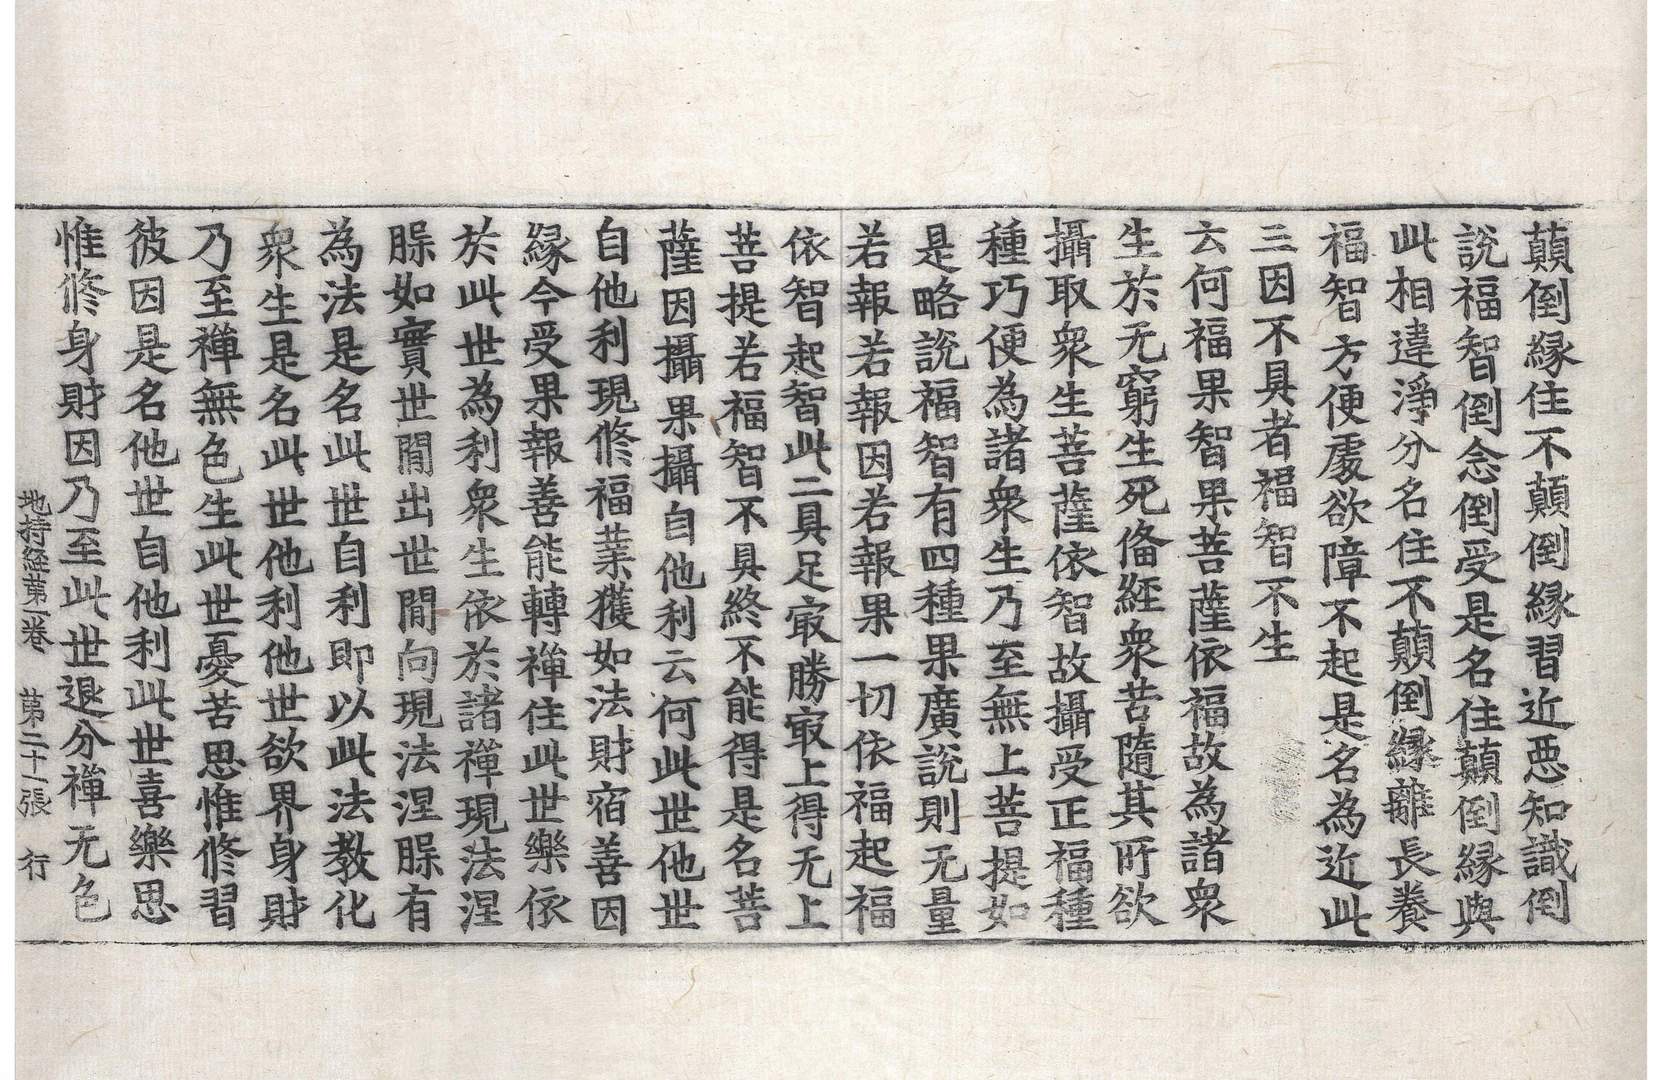 顛倒縁住不顛倒縁習近惡知識倒
說福智倒念倒受是名住顛倒縁與
此相違淨分名住不顛倒縁離長養
福智方便處欲障不起是名為近此
三因不具者福智不生
云何福果智果菩薩依福故為諸衆
生於无窮生死俻經衆苦隨其所欲
攝取衆生菩薩依智故攝受正福種
種巧便為諸衆生乃至無上菩提如
是略說福智有四種果廣說則无量
若報若報因若報果一切依福起福
依智起智此二具足㝡勝㝡上得无上
菩提若福智不具終不能得是名菩
薩因攝果攝自他利云何此世他世
自他利現修福業獲如法財宿善因
縁今受果報善能轉禪住此世樂依
於此世為利衆生依於諸禪現法涅
𦙃如實世間出世間向現法涅𦙃有
為法是名此世自利即以此法教化
衆生是名此世他利他世欲界身財
乃至禪無色生此世憂苦思惟修習
彼因是名他世自他利此世喜樂思
惟修身財因乃至此世退分禪无色
地持経苐一卷　苐二十一張　行